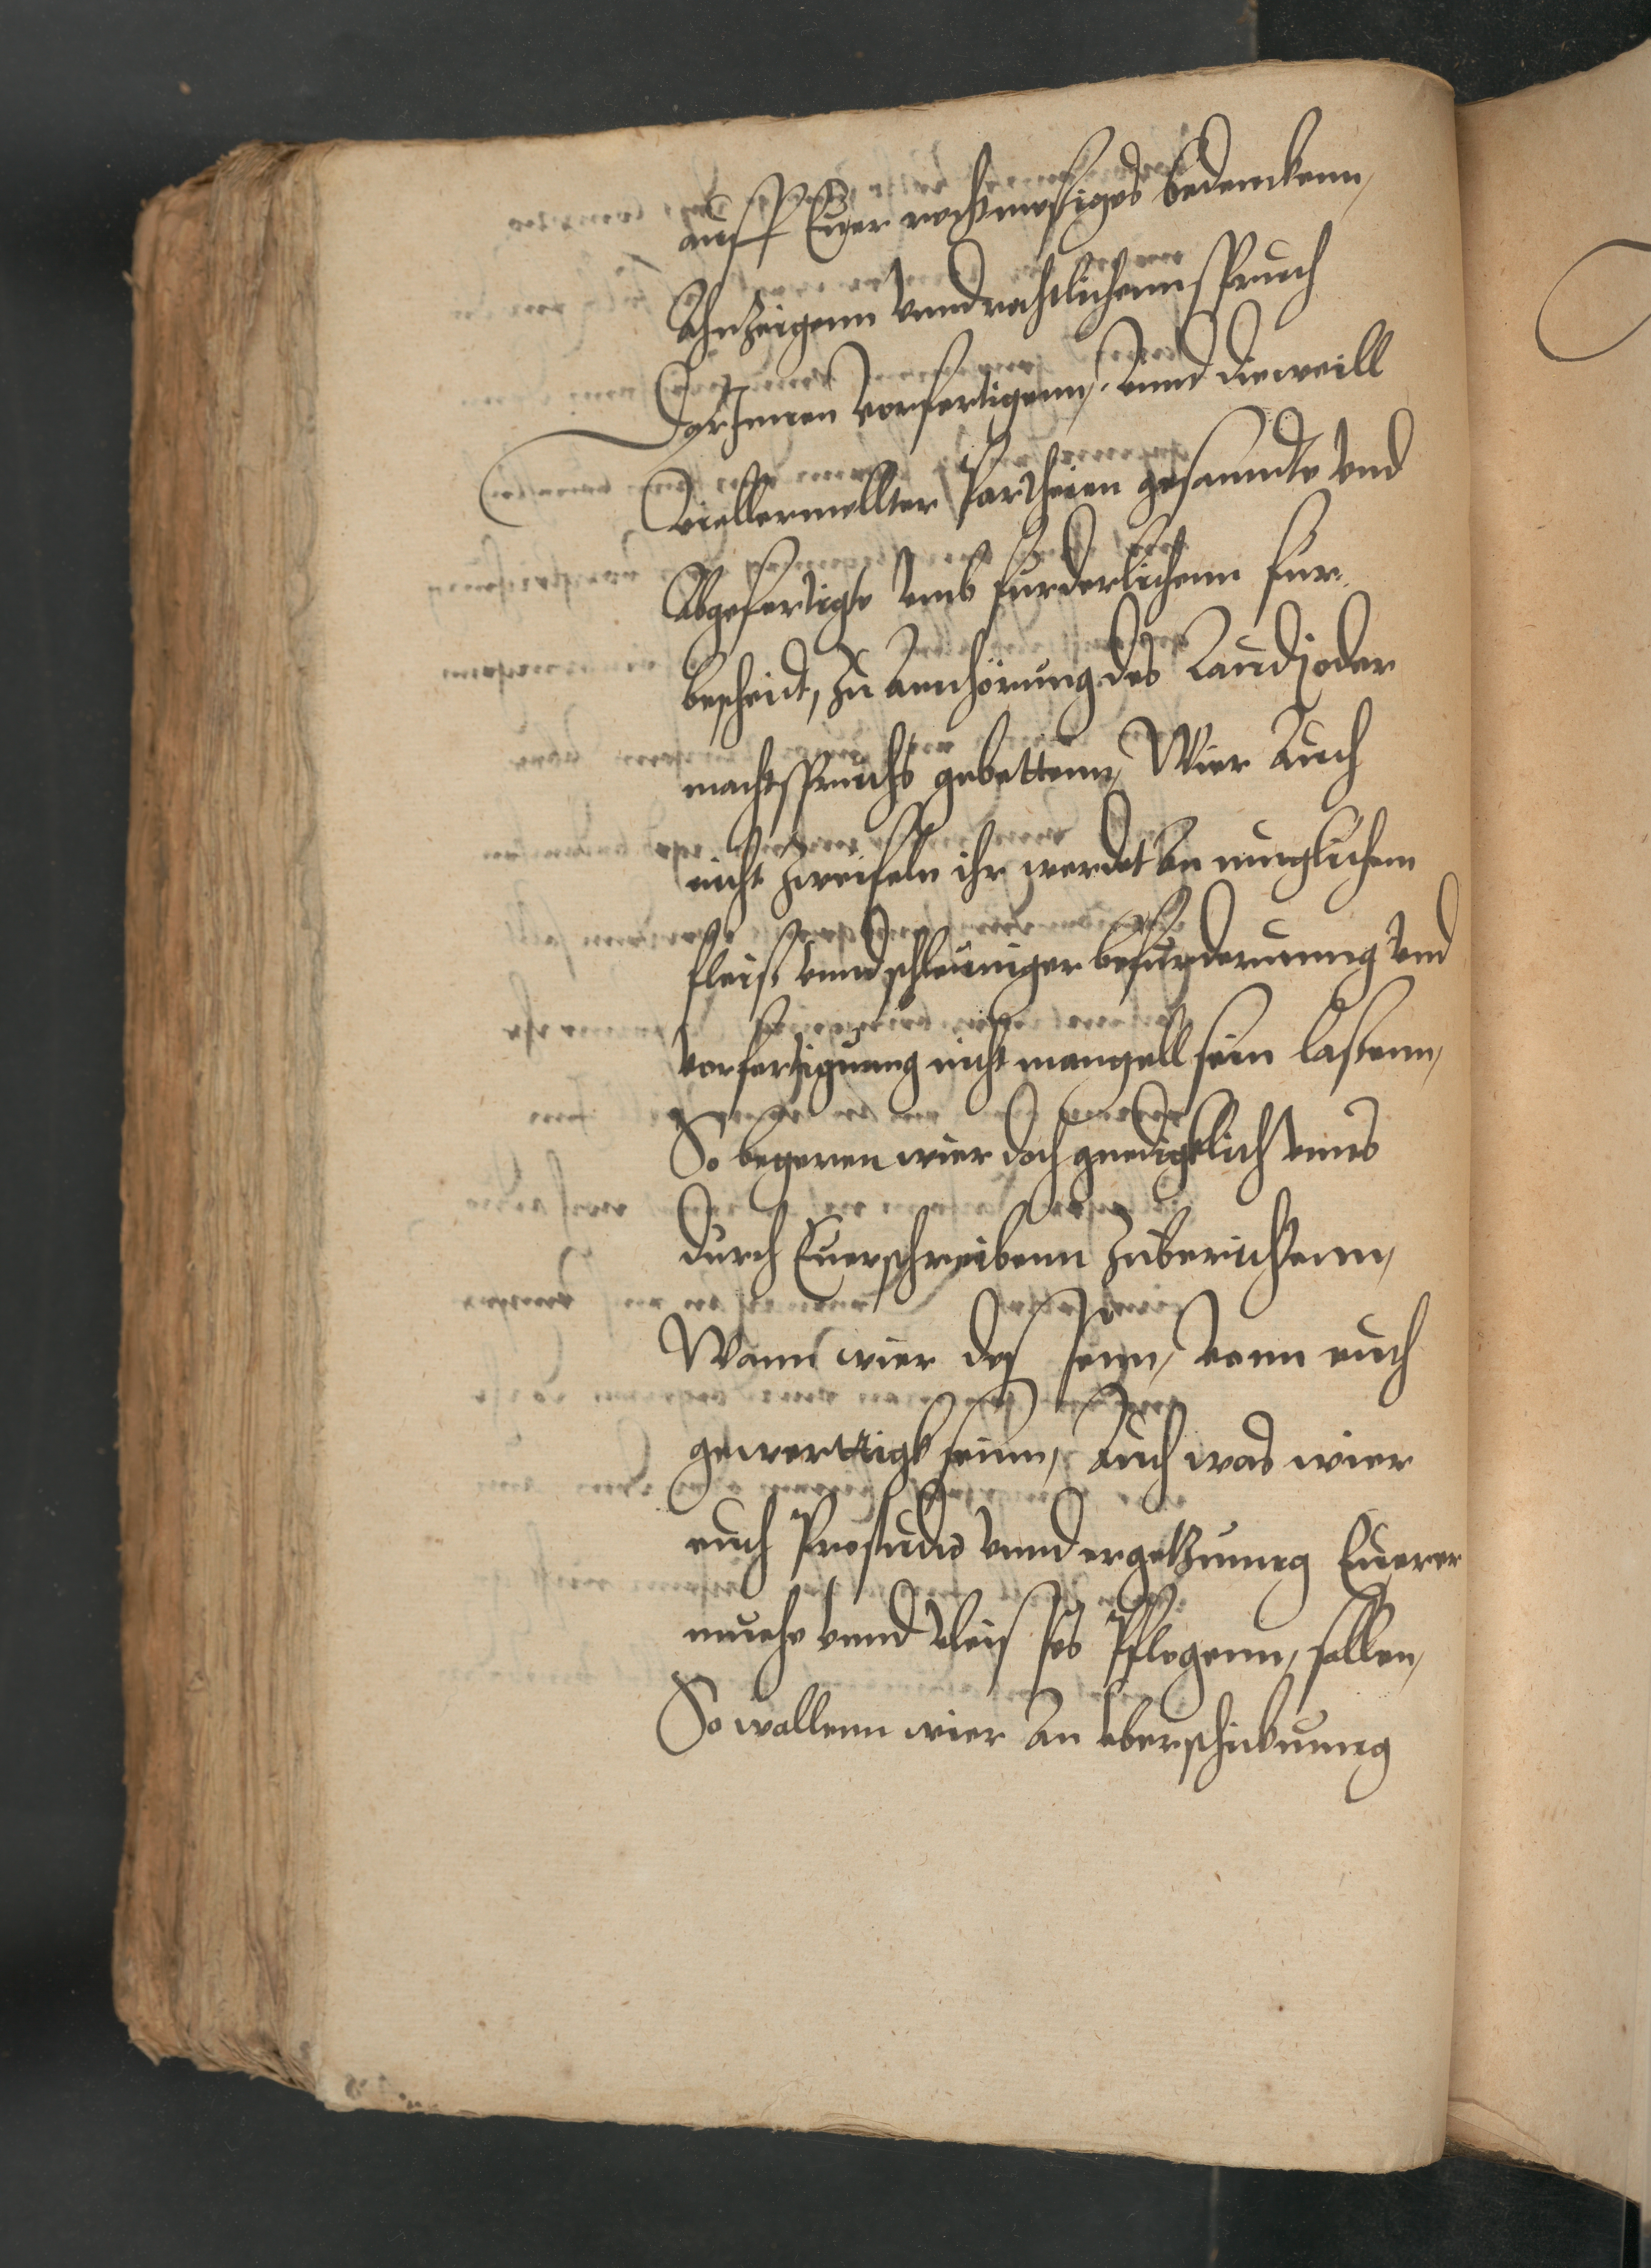 auff Euer rechtmesiges bedenckenn,
Ahnzeigenn vnnd rechtlichenn spruch
darInnen vorfertigenn, vnnd dieweill
viellermellter Partheien gesanndte vnd
Abgefertigte vmb furderlichenn fur
bescheidt, zu Annhörung des Laudj oder
machtspruchs gebettenn, Wier Auch
nicht zweifeln ihr werdet An muglichem
fleis vnnd schleuniger befurderunng vnd
vorfertigung nicht mangell sein lassenn,
So begeren wier doch gnediglich vnns
durch Euer schreibenn zuberichtenn,
Wann wier des seinn, vonn euch
gewerttigk seinn, Auch was wier
euch Pro studio vnnd ergetzunng Euerer
muehe vnnd vleis so Pflegenn, sollen,
So wollenn wier An vberschickunng